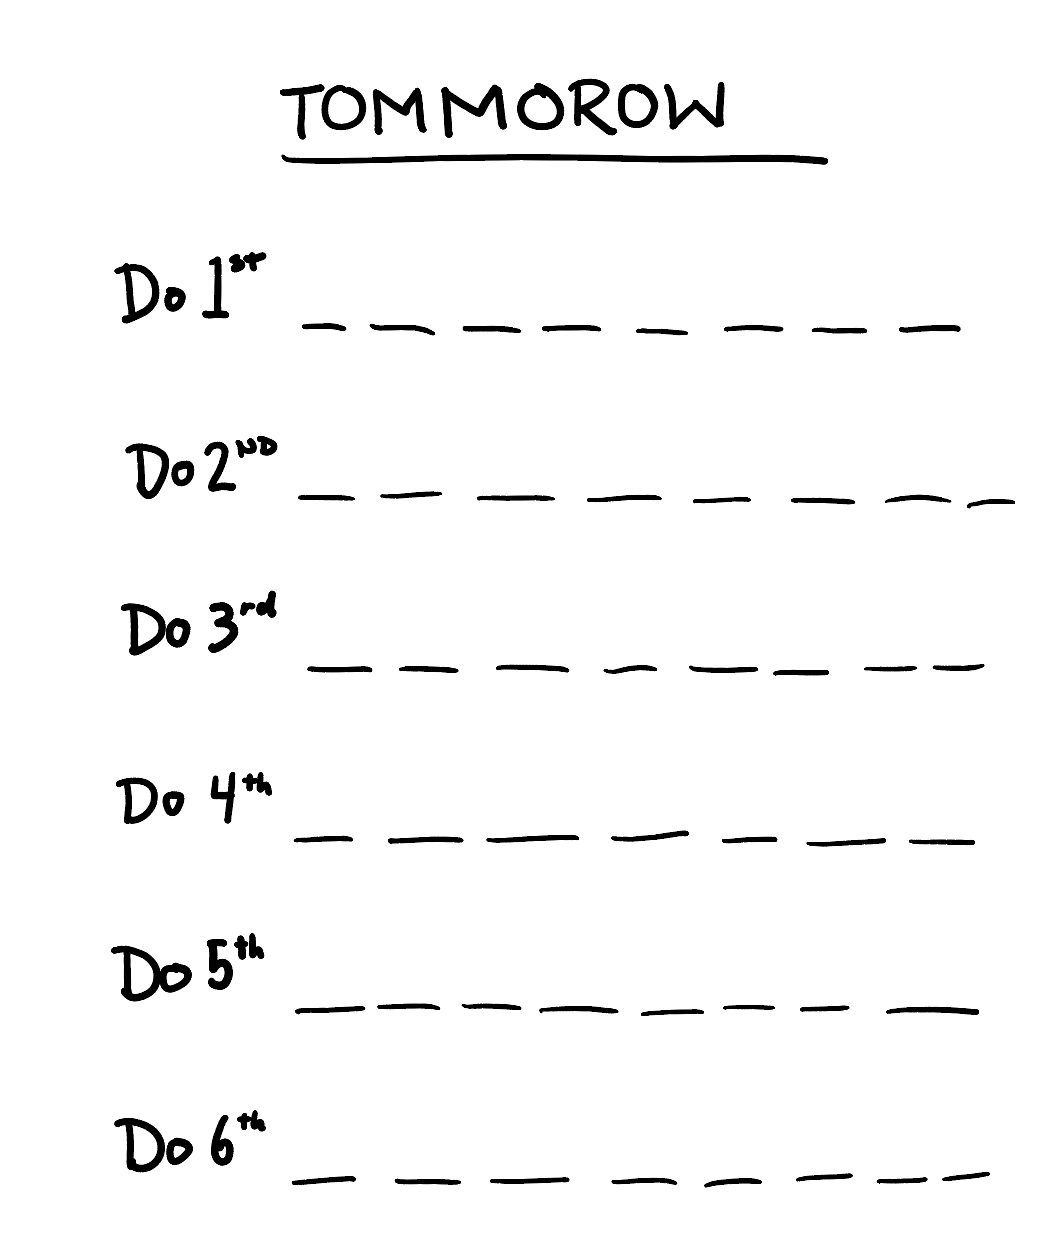 TOMMOROW
Do 1st _ _ _ _ _ _ _ _
Do 2ND _ _ _ _ _ _ _ _
Do 3rd _ _ _ _ _ _ _ _
Do 4th _ _ _ _ _ _ _
Do 5th _ _ _ _ _ _ _ _
Do 6th _ _ _ _ _ _ _ _